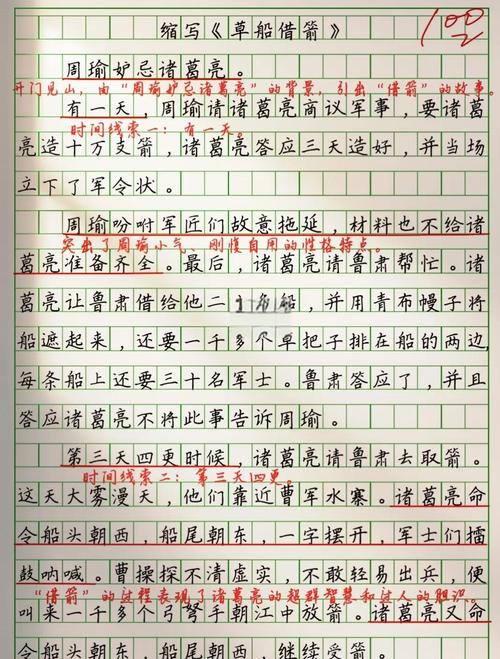 缩写《草船借箭》
100
周瑜妒忌诸葛亮。
开门见山，由“周瑜妒忌诸葛亮”的背景，引出“借箭”的故事。
有一天，周瑜请诸葛亮商议军事，要诸葛
时间线索一：有一天。
亮造十万支箭，诸葛亮答应三天造好，并当场
立下了军令状。
周瑜吩咐军匠们故意拖延，材料也不给诸
突出了周瑜小气、刚愎自用的性格特点。
葛亮准备齐全。最后，诸葛亮请鲁肃帮忙。诸
葛亮让鲁肃借给他二船，并用青布幔子将
船遮起来，还要一千多个草把子排在船的两边，
每条船上还要三十名军士。鲁肃答应了，并且
答应诸葛亮不将此事告诉周瑜。
第三天四更时候，诸葛亮请鲁肃去取箭。
时间线索二：第三天四更。
这天大雾漫天，他们靠近曹军水寨。诸葛亮命
令船头朝西，船尾朝东，一字摆开，军士们擂
鼓呐喊。曹操探不清虚实，不敢轻易出兵，便
“借箭”的过程表现了诸葛亮的超群智慧和过人的胆识。
叫来一千多个弓弩手朝江中放箭。诸葛亮又命
令船头朝东，船尾朝西，继续受箭。